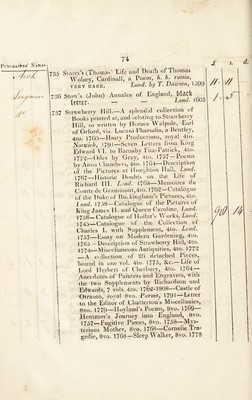 74
PURCHASERS' NAMES
£ s. d.
735 Storer's (Thomas) Life and Death of Thomas
Wolsey, Cardinall, a Poem, h. b. russia,
VERY RARE. Lond. by T. Dawson, 1599
11 11
736 Stow's (John) Annales of England, black
letter. — — Lond. 1605
1 5
737 Strawberry Hill.—A splendid Collection of
Books printed at, and relating to Strawberry
Hill, or written by Horace Walpole, Earl
of Orford, viz. Lucani Pharsalia, a Bentley,
4to. 1760—Hasty Productions, royal 4to.
Norwich, 1791—Seven Letters from King
Edward VI. to Barnaby Fitz-Patrick, 4to.
1772—Odes by Gray, 4to. 1757—Poems
by Anna Chambers, 4to. 1764—Description
of the Pictures at Houghton Hall, Lond.
1767—Historic Doubts on the Life of
Richard III. Lond. 1768—Memoires du
Comte de Grammont, 4to. 1762—Catalogue
of the Duke of Buckingham's Pictures, 4to.
Lond. 1758—Catalogue of the Pictures of
King James II. and Queen Caroline, Lond.
1758—Catalogue of Hollar's Works, Lond.
1745—Catalogue of the Collection of
Charles I. with Supplement, 4to. Lond.
1757—Essay on Modern Gardening, 4to.
1785—Description of Strawberry Hill, 4to.
1774—Miscellaneous Antiquities, 4to. 1772
—A collection of 26 detached Pieces,
bound in one vol. 4to. 1775, &c.—Life of
Lord Herbert of Cherbury, 4to. 1764—
Anecdotes of Painters and Engravers, with
the two Supplements by Richardson and
Edwards, 7 vols. 4to. 1762-1808—Castle of
Otranto, royal 8vo. Parma, 1791—Letter
to the Editor of Chatterton's Miscellanies,
8vo. 1779—Hoyland's Poems, 8vo. 1769—
Hentzner's Journey into England, 8vo.
1757—Fugitive Pieces, 8vo. 1758—Mys-
terious Mother, 8vo. 1768—Cornelie Tra-
gedie, 8vo. 1768—Sleep Walker, 8vo. 1778